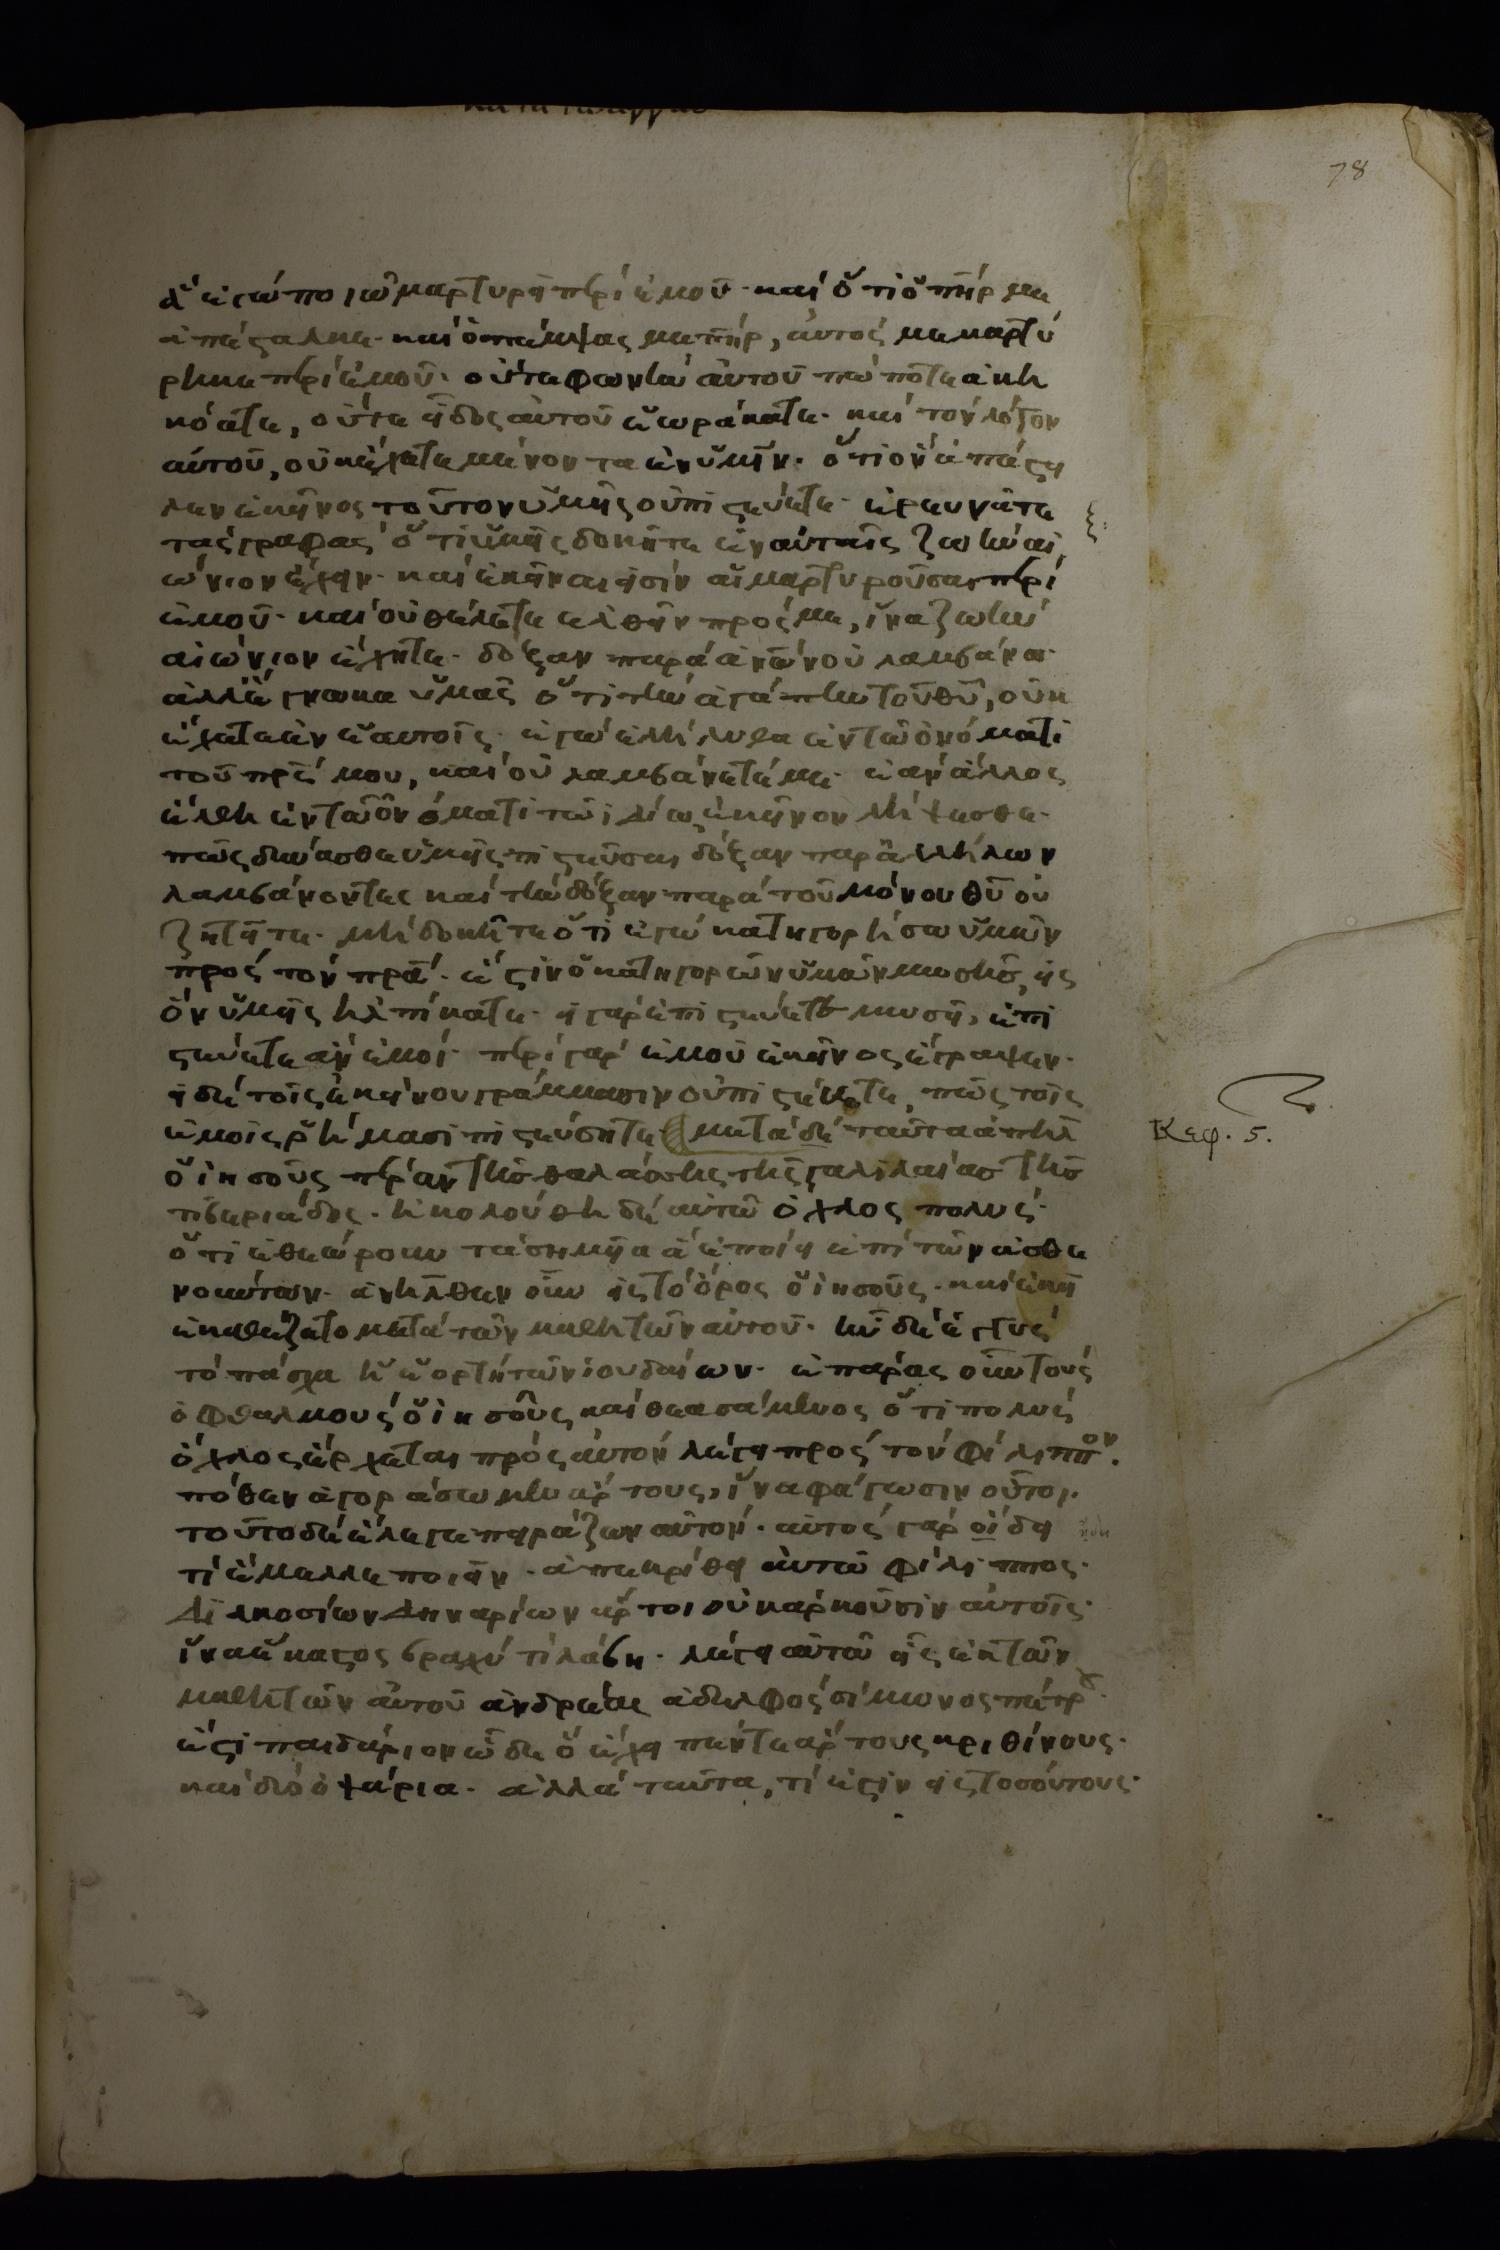 78
ἃ ἐγώ ποιῶ μαρτυρεῖ περί ἐμοῦ· καί ὅτι ὁ πηρ με
ἀπέσταλκε· καί ὁ πέμψας με πηρ, αὐτός μεμαρτύ
ρηκε περί ἐμοῦ· οὔτε φωνήν αὐτοῦ πώποτε ἀκη
κόατε, οὔτε εἶδος αὐτοῦ ἑωράκατε· καί τόν λόγον
αὐτοῦ, οὐκ ἔχετε μένοντα ἐν ὑμῖν· ὅτι ὅν ἀπέστει
λεν ἐκεῖνος τοῦτον ὑμεῖς οὐ πιστεύετε· ἐρευνᾶτε
τάς γραφάς ὅτι ὑμεῖς δοκεῖτε ἐν αὐταῖς ζωήν αἰ
ώνιον ἔχειν· καί ἐκεῖναι εἰσίν αἱ μαρτυροῦσαι περί
ἐμοῦ· καί οὐ θέλετε ἐλθεῖν πρός με, ἵνα ζωήν
αἰώνιον ἔχητε· δόξαν παρά ἀνων οὐ λαμβάνω·
ἀλλ' ἔγνωκα ὑμᾶς ὅτι τήν ἀγάπην τοῦ θυ, οὐκ
ἔχετε ἐν ἑαυτοῖς· ἐγώ ἐλήλυθα ἐν τῶ ὀνόματι
τοῦ πρς μου, καί οὐ λαμβάνετέ με· ἐάν ἄλλος
ἔλθη ἐν τῶ ὀνόματι τῶ ἰδίω, ἐκεῖνον λήψεσθε·
πῶς δύνασθε ὑμεῖς πιστεῦσαι δόξαν παρ' ἀλλήλων
λαμβάνοντες καί τήν δόξαν παρά τοῦ μόνου θυ οὐ
ζητεῖτε· μή δοκεῖτε ὅτι ἐγώ κατηγορήσω ὑμῶν
πρός τόν πρα· ἔστιν ὁ κατηγορῶν ὑμῶν μωσῆς, εἰς
ὅν ὑμεῖς ἠλπίκατε· εἰ γάρ ἐπιστεύετε μωσῆ, ἐπι
στεύετε ἄν ἐμοί· περί γάρ ἐμοῦ ἐκεῖνος ἔγραψεν·
εἰ δέ τοῖς ἐκείνου γράμμασιν οὐ πιστεύετε, πῶς τοῖς
ἐμοῖς ῥήμασι πιστεύσητε μετά δέ ταῦτα ἀπῆλ
Κεφ. 5.
ὁ ἰησοῦς πέραν τῆς θαλάσσης τῆς γαλιλαίας τῆς
τιβεριάδος· ἠκολούθη δέ αὐτῶ ὄχλος πολύς·
ὅτι ἐθεώρουν τά σημεῖα ἅ ἐποίει ἐπί τῶν ἀσθε
νούντων· ἀνῆλθεν οὖν εἰς τό ὄρος ὁ ἰησοῦς· καί ἐκεῖ
ἐκαθέζετο μετά τῶν μαθητῶν αὐτοῦ· ἦν δέ ἐγγύς
τό πάσχα ἡ ἑορτή τῶν ἰουδαίων· ἐπάρας οὖν τούς
ὀφθαλμούς ὁ ἰησοῦς καί θεασάμενος ὅτι πολύς
ὄχλος ἔρχεται πρός αὐτόν λέγει πρός τόν φίλιππον·
πόθεν ἀγοράσωμεν ἄρτους, ἵνα φάγωσιν οὗτοι·
τοῦτο δέ ἔλεγε πειράζων αὐτόν· αὐτός γάρ οἶδε
τί ἔμελλε ποιεῖν· ἀπεκρίθη αὐτῶ φίλιππος·
διακοσίων δηναρίων ἄρτοι οὐκ ἀρκοῦσιν αὐτοῖς·
ἵνα ἕκαστος βραχύ τι λάβη· λέγει αὐτῶ εἷς ἐκ τῶν
μαθητῶν αὐτοῦ ἀνδρέας ἀδελφός σίμωνος πέτρου·
ἔστι παιδάριον ὧδε ὅ ἔχει πέντε ἄρτους κριθίνους·
καί δύο ὀψάρια· ἀλλά ταῦτα, τί ἐστίν εἰς τοσούτους·